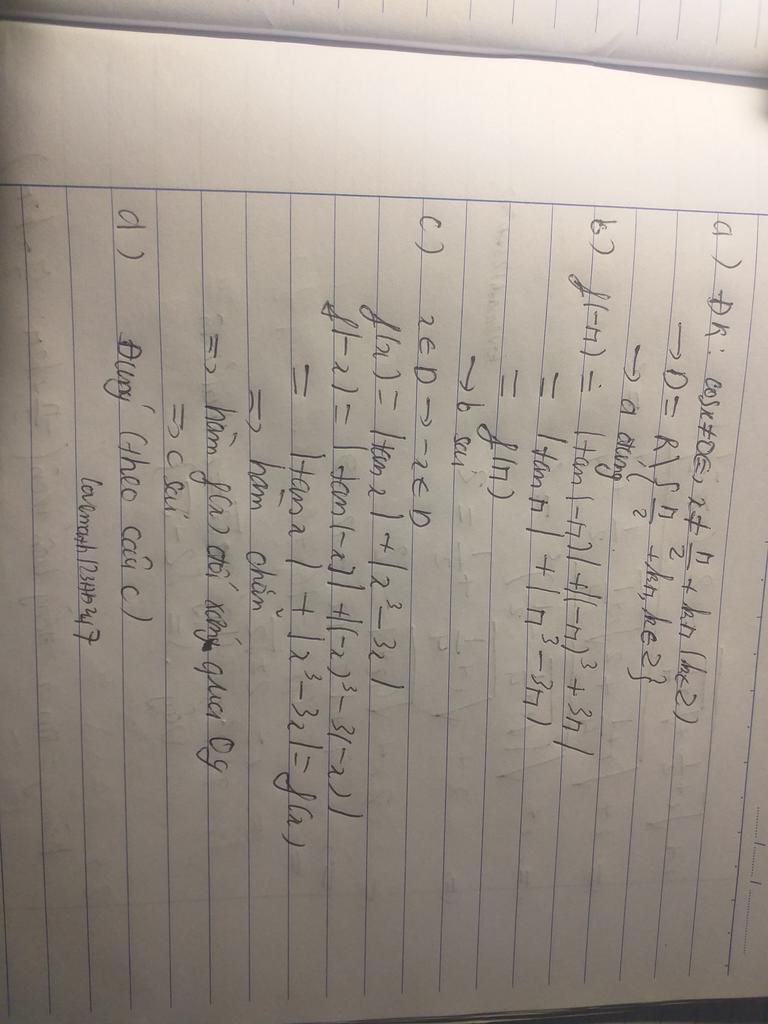 a) ĐK: cosx≠0 ⇔ x≠π/2+kπ (k∈Z)
→ D = R\{π/2+kπ, k∈Z}
→ a đúng
b) f(-π) = |tan(-π)|+|(-π)³+3π|
= |tanπ|+|π³-3π|
= f(π)
→ b sai
c) x∈D → -x∈D
f(x) = |tanx|+|x³-3x|
f(-x) = |tan(-x)|+|(-x)³-3(-x)|
= |tanx|+|x³-3x| = f(x)
=> hàm chẵn
=> hàm f(x) đối xứng qua Oy
=> c sai
d) Đúng (theo câu c)